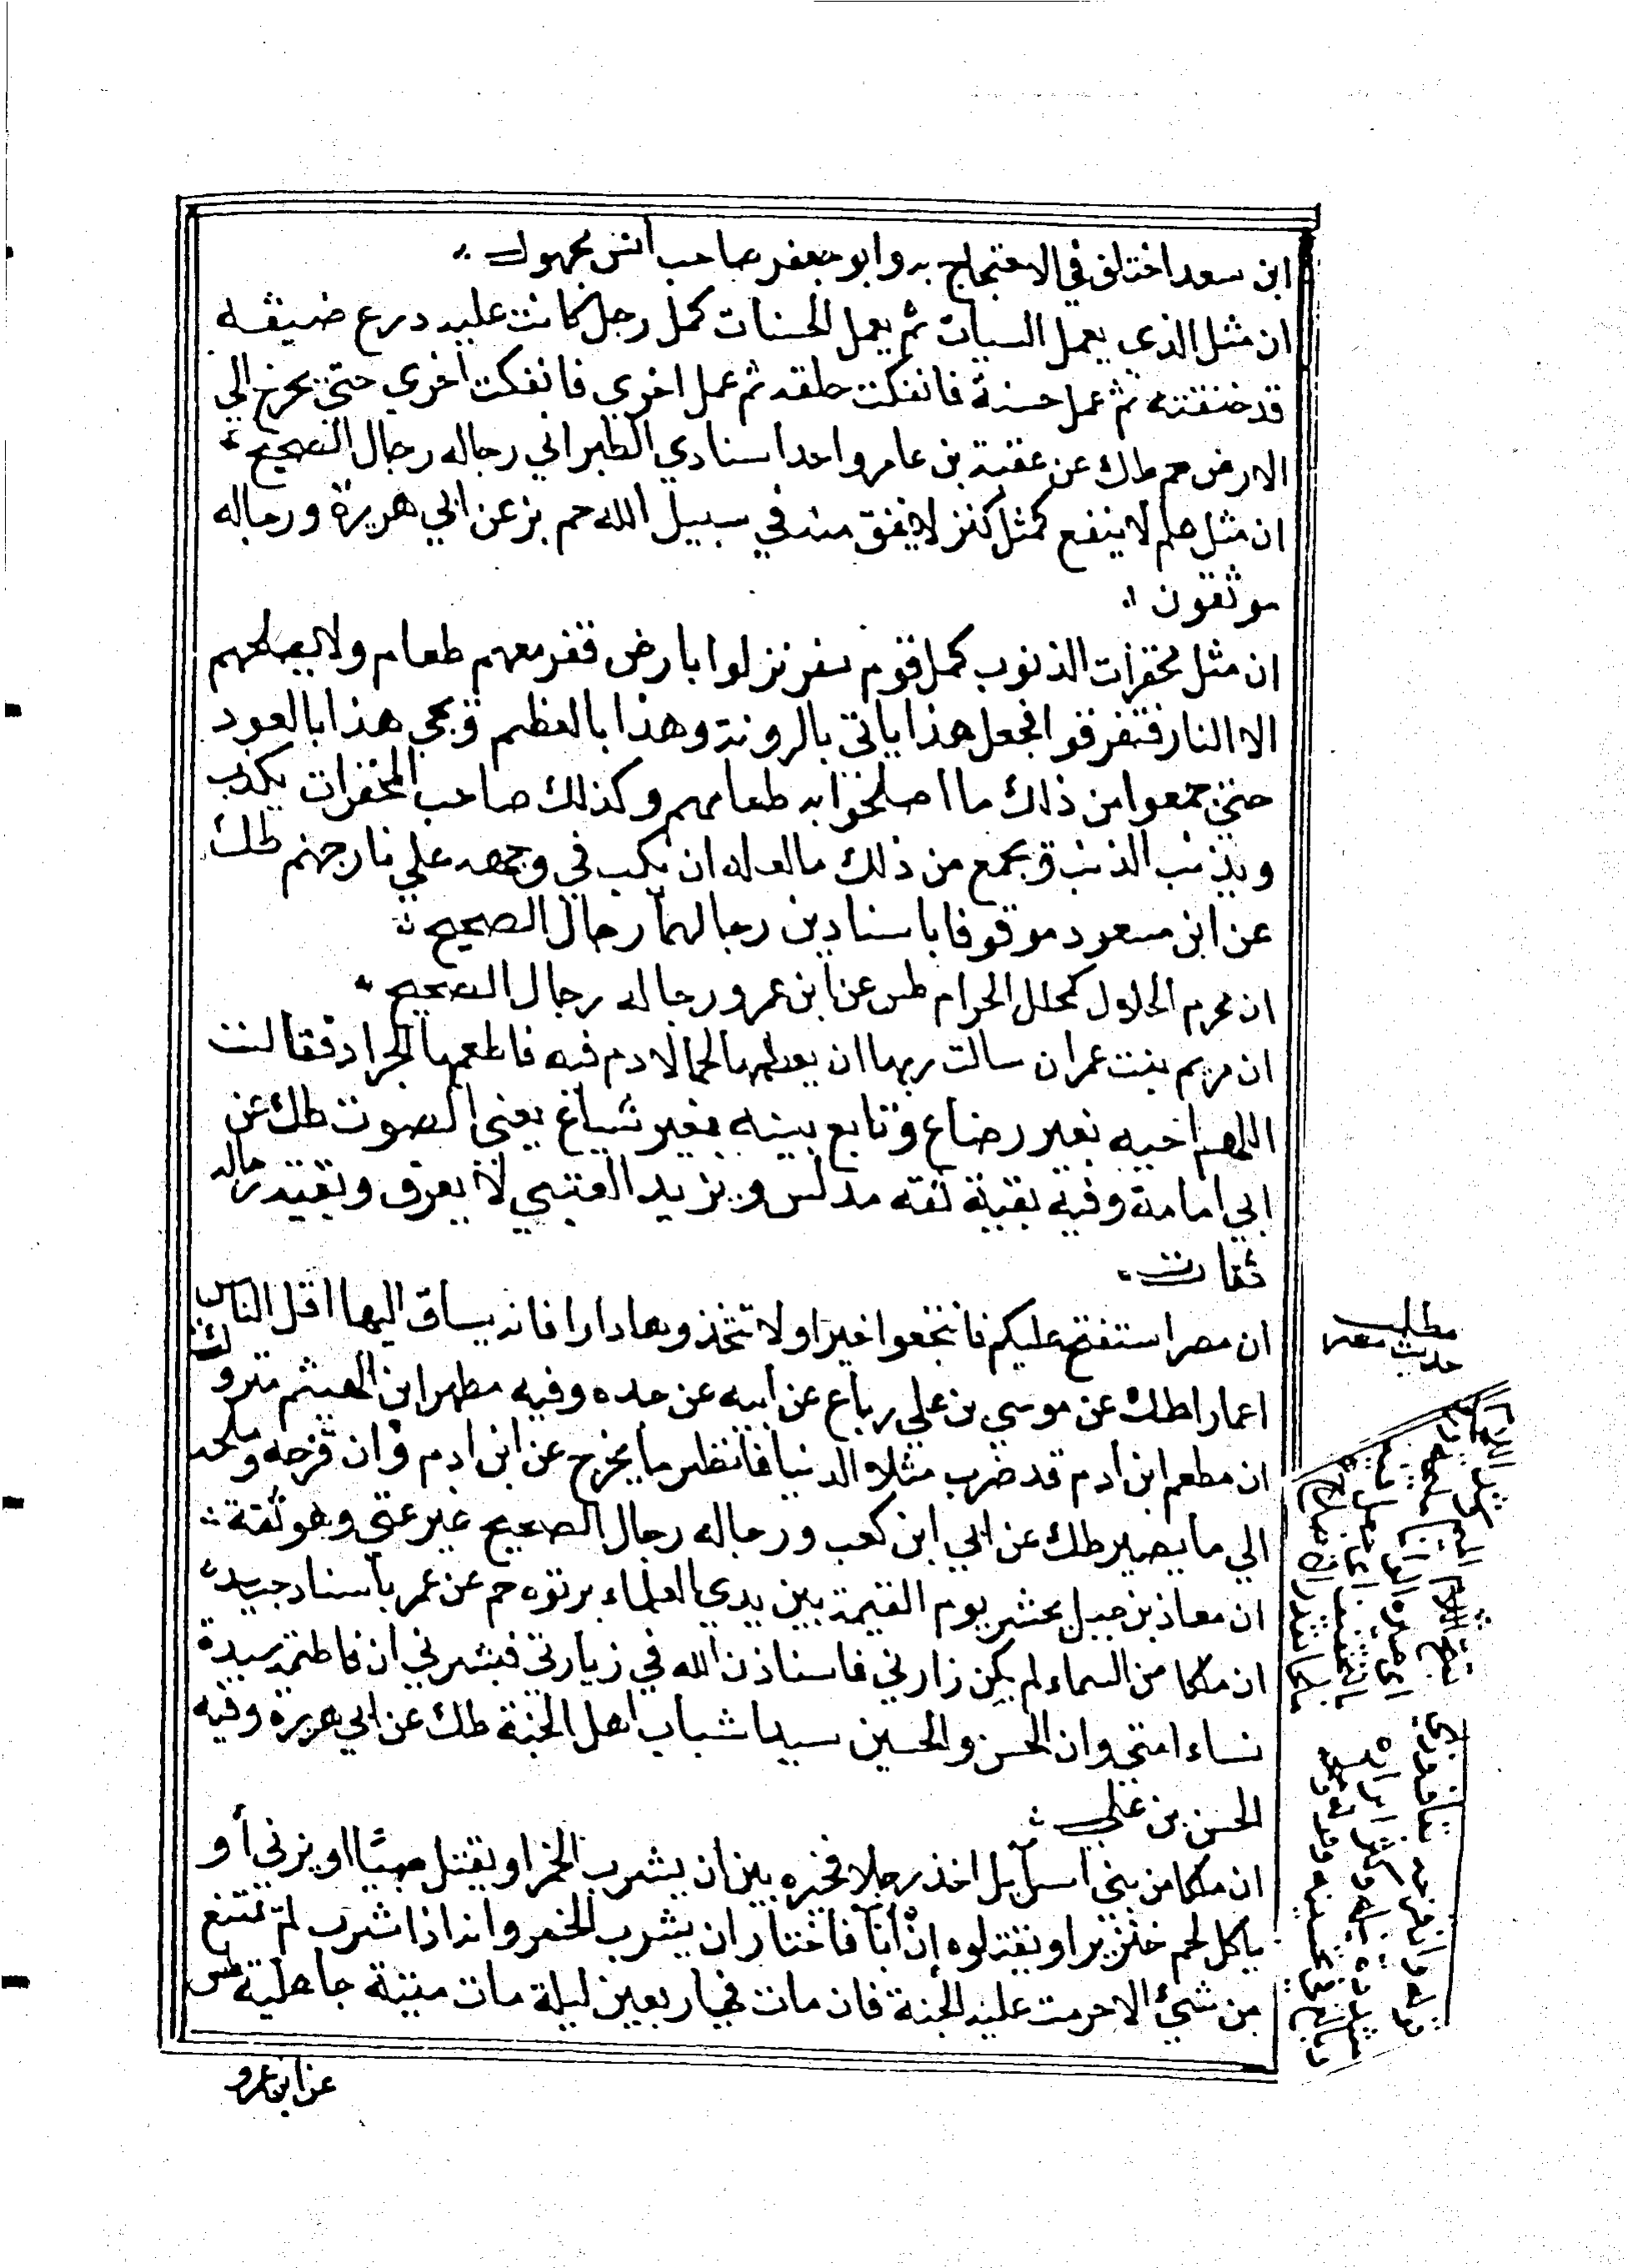 ابن سعد اختلف في الاحتجاج به وابو جعفر صاحب انس مجهول
ان مثل الذي يعمل السيات ثم يعمل الحسنات كمل رجل كانت عليه درع ضيقه
قد خنقته ثم عمل حسنة فانفكت حلقه ثم عمل اخري فانفكت اخري حتي يخرج الي
الارض حم طك عن عقبة بن عامر واحد اسنادي الطبراني رجاله رجال الصحيح
ان مثل علم لا ينفع كمثل كنز لا ينفق منه في سبيل الله حم بز عن ابي هريرة ورجاله
موثقون
ان مثل محقرات الذنوب كمل قوم سفر نزلوا بارض قفر معهم طعام ولا يصلحهم
الا النار فتفرقوا فجعل هذا ياتي بالروثة وهذا بالعظم ويجي هذا بالعود
حتي جمعوا من ذلك ما اصلحوا به طعامهم وكذلك صاحب المحقرات يكذب
ويذنب الذنب ويجمع من ذلك ما لعله ان يكب في وجهه علي نار جهنم طك
عن ابن مسعود موقوفا باسنادين رجالهما رجال الصحيح
ان محرم الحلال كمحلل الحرام طس عن ابن عمر ورجاله رجال الصحيح
ان مريم بنت عمران سالت ربها ان يطعمها لحما لا دم فيه فاطعمها الجراد فقالت
اللهم احيه بغير رضاع وتابع بينه بغير شياع يعني الصوت طك عن
ابي امامة وفيه بقية ثقه مدلس ويزيد القتبي لا يعرف وبقية رجاله
ثقات
ان مصر استفتح عليكم فانتجعوا خيرا ولا تتخذوها دارا فانه يساق اليها اقل الناس
اعمارا طك عن موسي بن علي رباع عن ابيه عن جده وفيه مطهر ابن الهيثم متروك
ان مطعم ابن ادم قد ضرب مثلا للدنيا فانظر ما يخرج عن ابن ادم وان قزحه وملحه
الي ما يصير طك عن ابي ابن كعب ورجاله رجال الصحيح غير عتي وهو ثقة
ان معاذ بن جبل يحشر يوم القيمة بين يدي العلماء برتوه حم عن عمر باسناد جيد
ان ملكا من السماء لم يكن زارني فاستاذن الله في زيارتي فبشرني ان فاطمة سيدة
نساء امتي وان الحسن والحسين سيدا شباب اهل الجنة طك عن ابي هريرة وفيه
الحسن بن علي
ان ملكا من بني اسرآيل اخذ رجلا فخيره بين ان يشرب الخمر او يقتل صبيًا او يزني أو
ياكل لحم خنزير او يقتلوه إن أبا فاختار ان يشرب الخمر وانه اذا شرب لم تمتنع
من شئ الا حرمت عليه الجنة فان مات في اربعين ليلة مات ميتة جاهلية طس
عن ابن عمرو
مطلب
حديث مصر